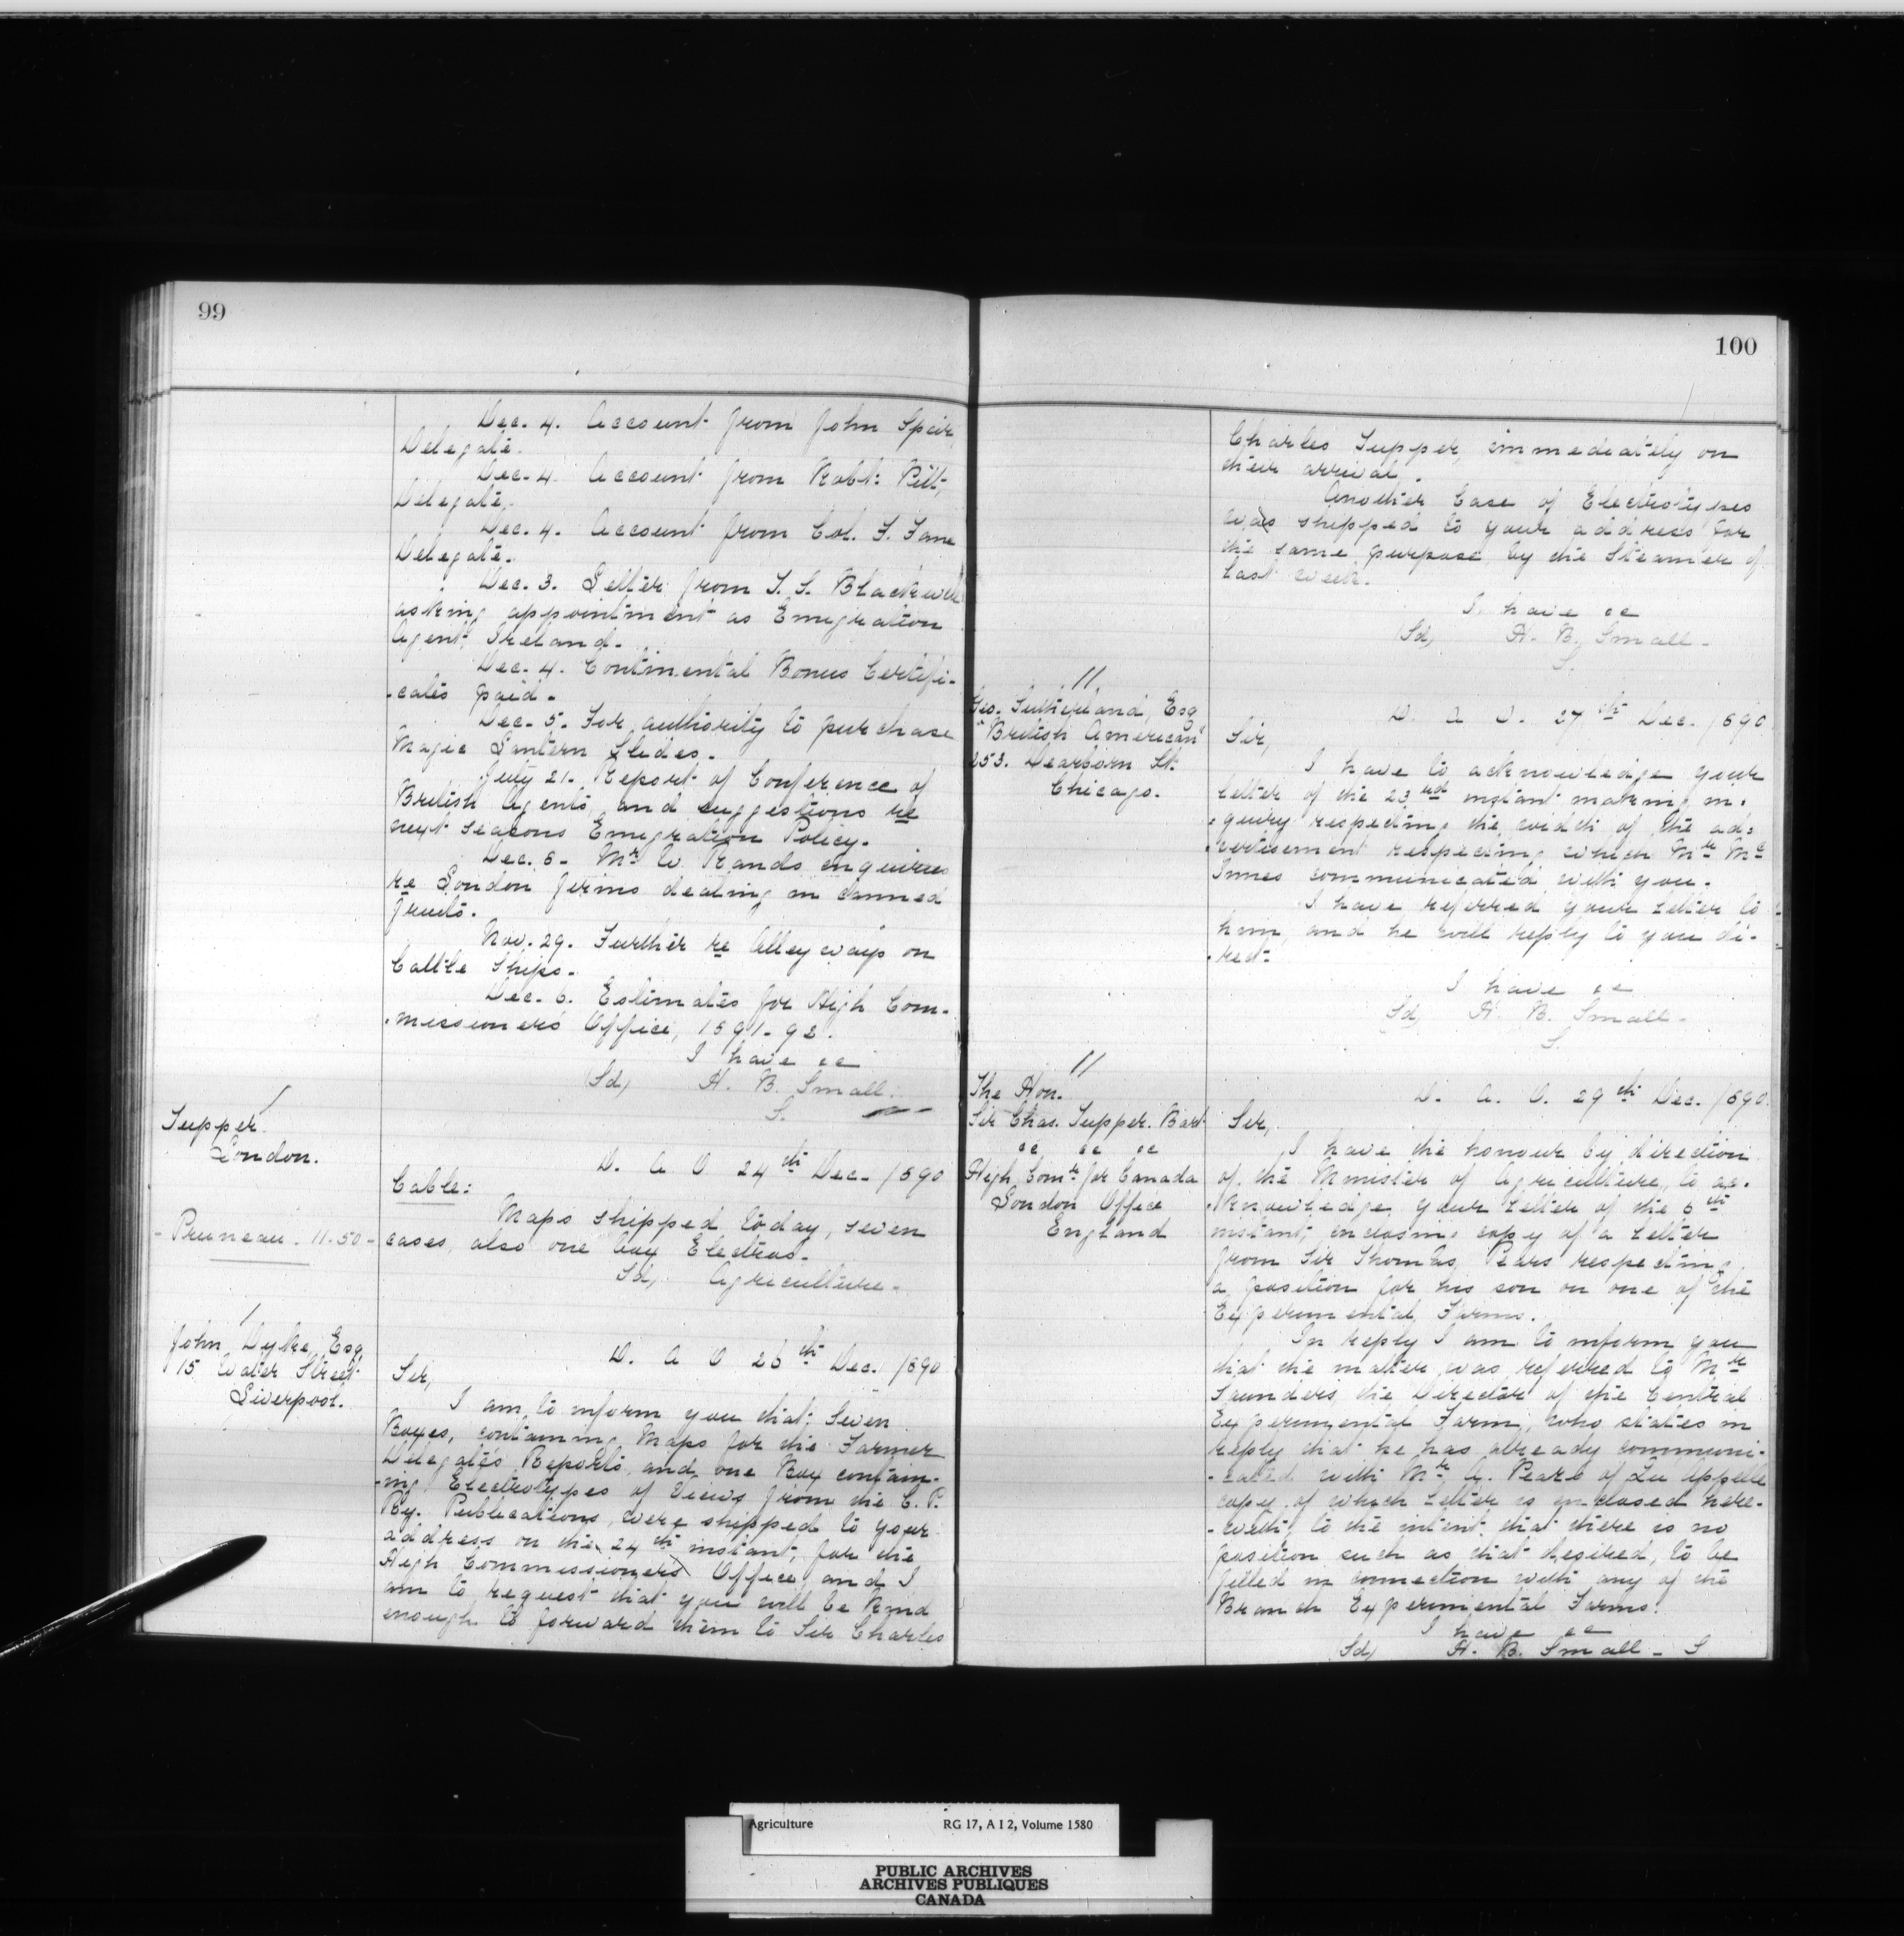 99
Dec. 4. Account from John Speir,
Delegate.
Dec. 4. Account from Robt: Pitt,
Delegate.
Dec. 4. Account from Col. F. Fane
Delegate.
Dec. 3. Letter from T. S. Blackwell
asking appointment as Emigration
Agent, Ireland.
Dec. 4. Continental Bonus Certifi-
-cates paid -
Dec. 5. For authority to purchase
Magic Lantern Slides.
July 21. Report of Conference of
British Agents and suggestions re
next seasons Emigration Policy.
Dec. 6 - Mr W. Rands enquiries
re London firms dealing in canned
fruits.
Nov. 29. Further re Alleyways on
Cattle Ships.
Dec. 6. Estimates for High Com-
-missioner's Office, 1891-92.
I have &c
(Sd) H. B. Small.
S.
Tupper
London.
D. A O 24th Dec. 1890
Cable:
Maps shipped today, seven
cases, also one box Electros.
Sd, Agriculture.
- Pruneau. 11.50 -
John Dyke, Esq
15 Water Street
Liverpool.
D. A O 26th Dec. 1890
Sir,
I am to inform you that, Seven
Boxes, containing Maps for the Farmer
Delegates Reports, and one Box contain-
-ing Electrotypes of Views from the C. P.
Ry. Publications, were shipped to your
address on the 24th instant, for the
High Commissioners Office, and I
am to request that you will be kind
enough to forward them to Sir Charles
100
Charles Tupper, immediately on
their arrival.
Another Case of Electrotypes
was shipped to your address for
the same purpose by the Steamer of
last week.
I have &c
(Sd) H. B. Small -
S.
Geo. Sutherland, Esq
"British American"
253. Dearborn St.
Chicago.
D. A O. 27th Dec. 1890
Sir,
I have to acknowledge your
letter of the 23rd instant making in-
-quiry respecting the width of the ad-
-vertisement respecting which Mr Mc
Innes communicated with you.
I have referred your letter to
him and he will reply to you di-
-rect.
I have &c
Sd, H. B. Small -
S.
The Hon.
Sir Chas. Tupper. Bart
&c &c &c
High Comr for Canada
London Office
England
D. A. O. 29th Dec. 1890.
Sir,
I have the honour by direction
of the Minister of Agriculture, to ac-
-knowledge your letter of the 6th
instant, enclosing copy of a letter
from Sir Thomas Pears respecting
a position for his son on one of the
Experimental Farms.
In reply I am to inform you
that the matter was referred to Mr
Saunders, the Director of the Central
Experimental Farm, who states in
reply that he has already communi-
-cated with Mr A. Pears of Qu'Appelle
copy of which letter is enclosed here-
-with, to the intent, that there is no
position such as that desired, to be
filled in connection with any of the
Branch Experimental Farms.
I have &c
Sd, H. B. Small - S
Agriculture RG 17, A I 2, Volume 1580
PUBLIC ARCHIVES
ARCHIVES PUBLIQUES
CANADA